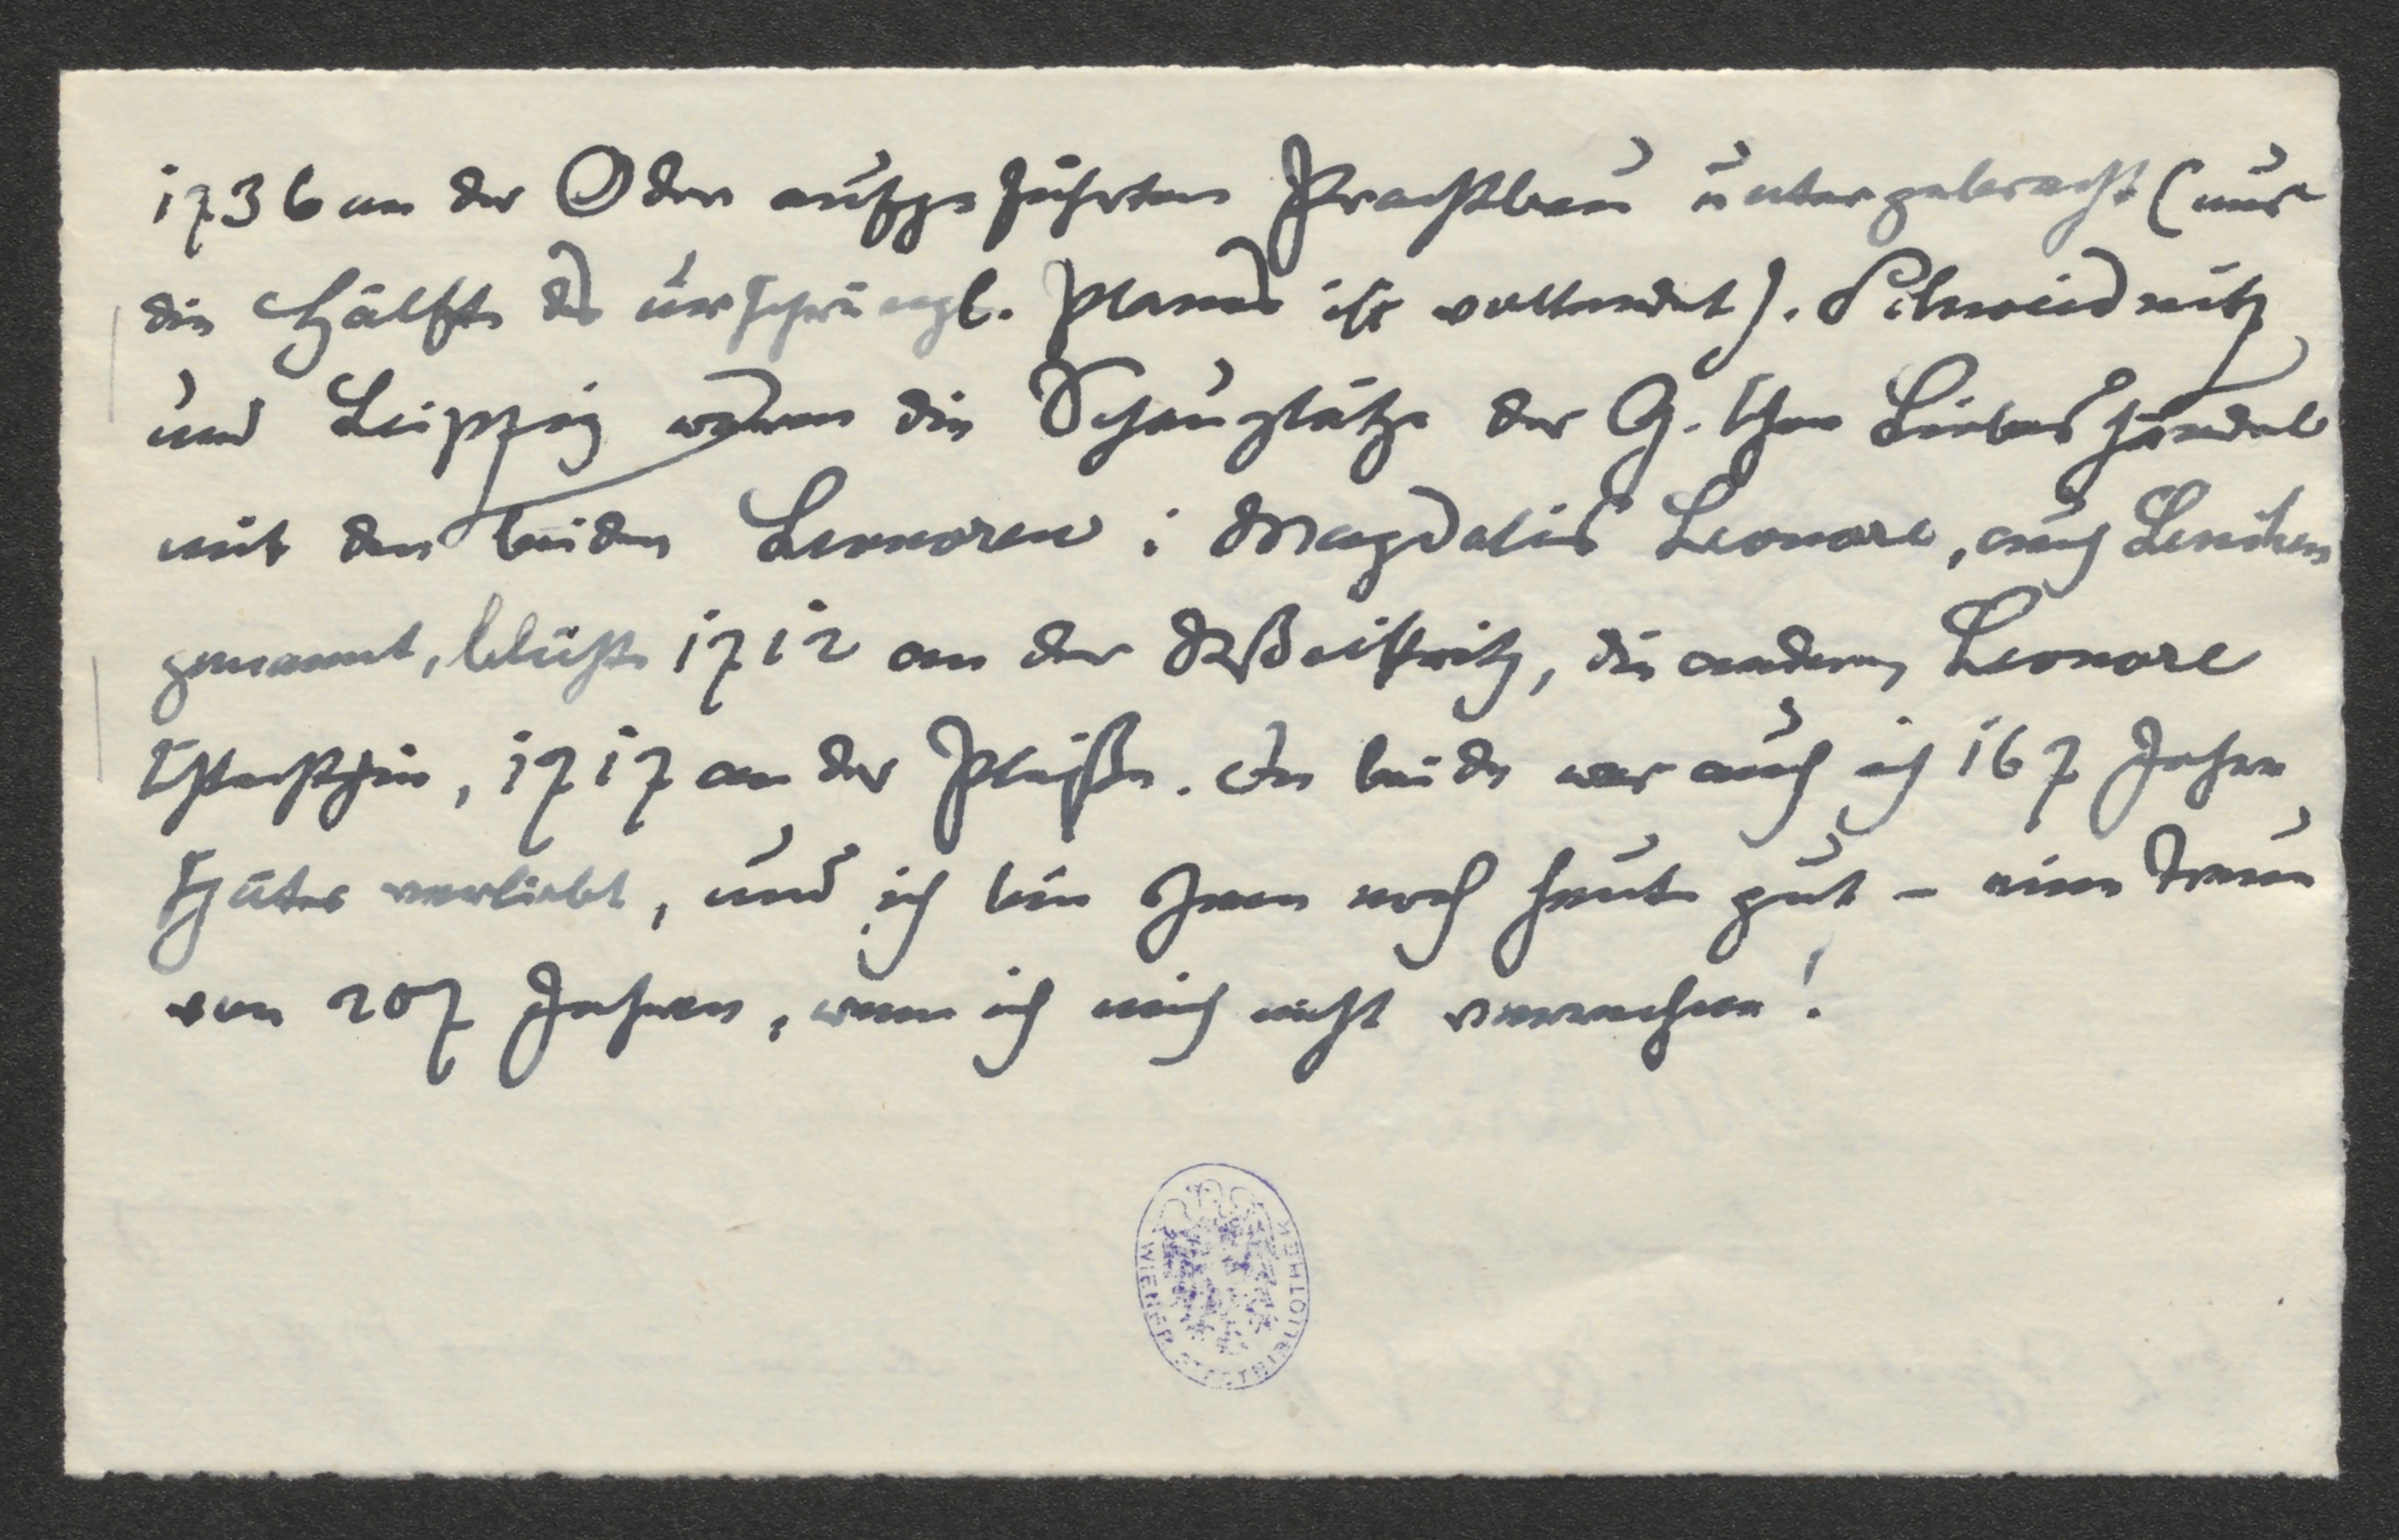 1736 an der Oder aufgeführten Prachtbau untergebracht (nur
die Hälfte des ursprüngl. Planes ist vollendet). Schweidnitz
und Leipzig waren die Schauplätze der G.schen Liebeshändel
mit den beiden Leonoren: Magdalis Leonore, auch Lenchen
genannt, blühte 1712 an der , die andere, Leonore
, 1717 an der Pleiße. In beide war auch ich 167 Jahre
später verliebt, und ich bin Ihnen noch heute gut – eine Treue
von 207 Jahren, wenn ich mich nicht verrechne!
WIENER STADTBIBLIOTHEK